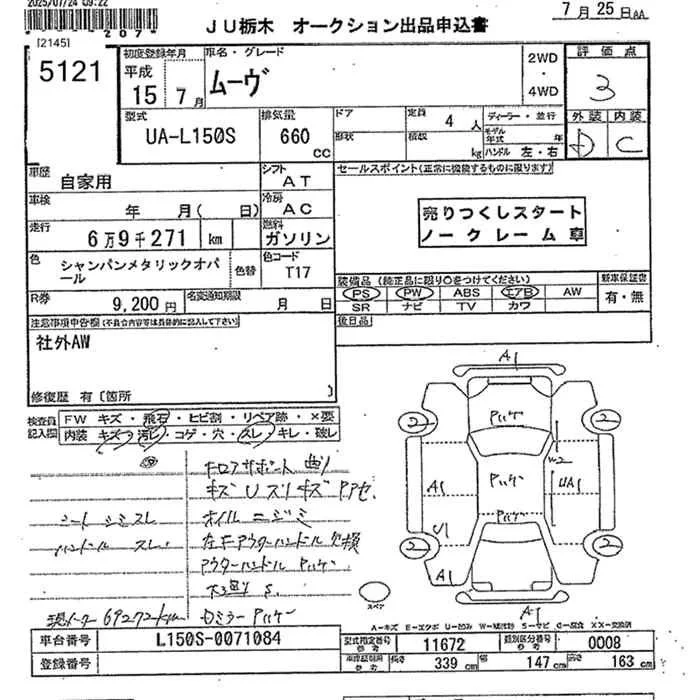 2025/07/24 09:22
7月25日AA
207
[2145]
JU栃木 オークション出品申込書
5121
初度登録年月
平成
15年 7月
車名・グレード
ムーヴ
2WD
・
4WD
評価点
3
外装 内装
D C
型式
UA-L150S
排気量
660 CC
ドア
形状
定員 4人
積載 kg
ディーラー・並行
モデル年式 年
ハンドル 左・右
車歴
自家用
シフト
AT
車検
年 月( 日)
冷房
AC
走行
6万9千271 km
燃料
ガソリン
色
シャンパンメタリックオパール
色替
色コード
T17
R券
9,200円
名変通知期限
月 日
セールスポイント(正常に機能するものに限ります)
売りつくしスタート
ノークレーム車
装備品(純正品に限り○をつけてください)
PS PW ABS エアB AW
SR ナビ TV カワ
新車保証書
有・無
後日品
注意事項申告欄(不具合内容等は具体的に記入して下さい)
社外AW
修復歴 有〔箇所 〕
検査員記入欄
FW キズ・飛石・ヒビ割・リペア跡・×要
内装 キズ・汚レ・コゲ・穴・スレ・キレ・破レ
キズ
シート シミ スレ
オイルニジミ
ハンドル スレ
左Fアウターハンドル欠損
アウターハンドル
現メーター 69272km
A1
2
2
W2
A1
UA1
U1
2
2
A1
A1
スペア
A-キズ E-エクボ U-凹み W-補修跡 S-サビ C-腐食 XX-交換済
車台番号
L150S-0071084
登録番号
型式指定番号 参考
11672
類別区分番号 参考
0008
長さ 339 cm
幅 147 cm
高さ 163 cm